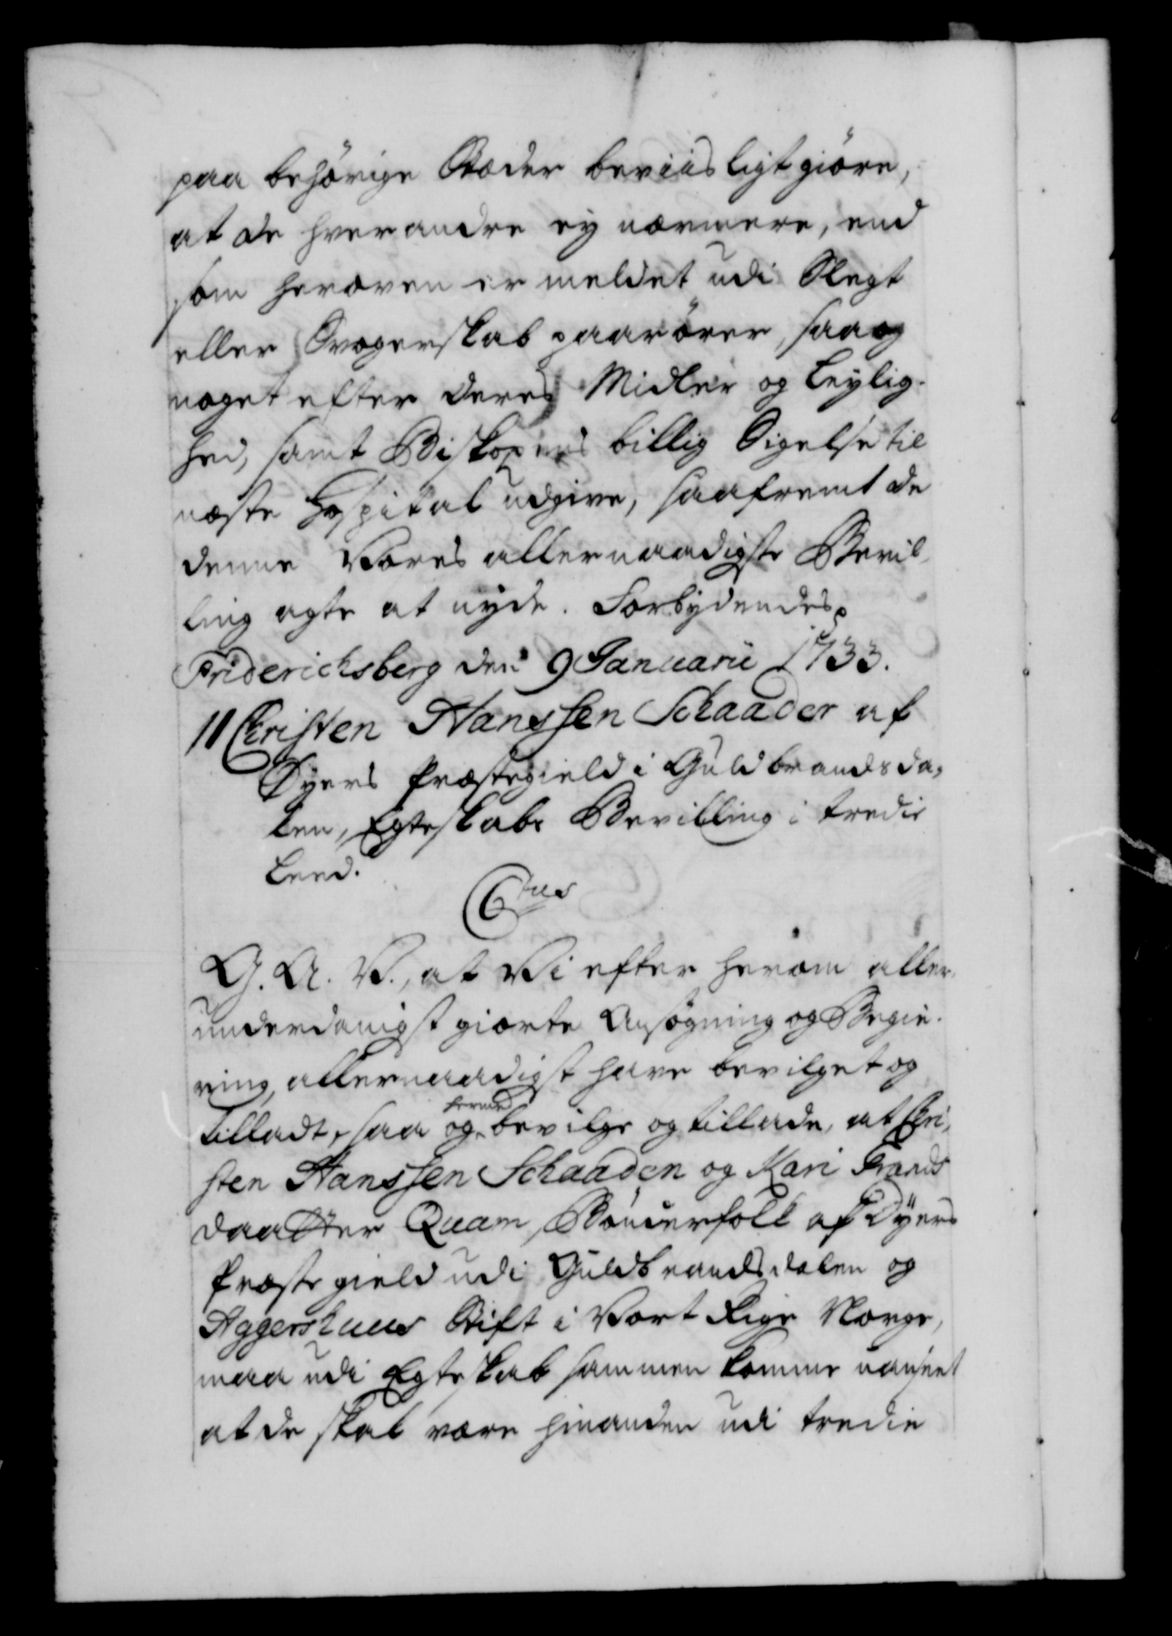 paa behörige Stæder beviisligt giöre,
at de hverandre ey nærmere, end
som heroven er meldet udi Slegt
eller Svogerskab paarörer, saa og
noget efter deres Midler og Leylig-
hed, samt Biskopens billig Sigelse til
næste Hospital udgive, saafremt de
denne Vores allernaadigste Bevil-
ling agte at nyde. Forbydendes
Friderichsberg den 9 Januarii 1733.
11 Christen Hanssen Schaader af
Öyers Præstegield i Guldbrandsda-
len, Egteskabs Bevilling i tredie
Leed.
C6tus
G. A. V., at Vi efter herom aller-
underdanigst giorte Ansögning og Begie-
ring, allernaadigst have bevilget og
tilladt, saa og hermed bevilge og tillade, at Chri-
sten Hanssen Schaaden og Kari Trands
daatter Quam, Bönderfolk af Öyers
Præstegield udi Guldbrandsdalen og
Aggershuus Stift i Vort Rige Norge,
maa udi Egteskab sammen komme uanseet
at de skal være hinanden udi tredie